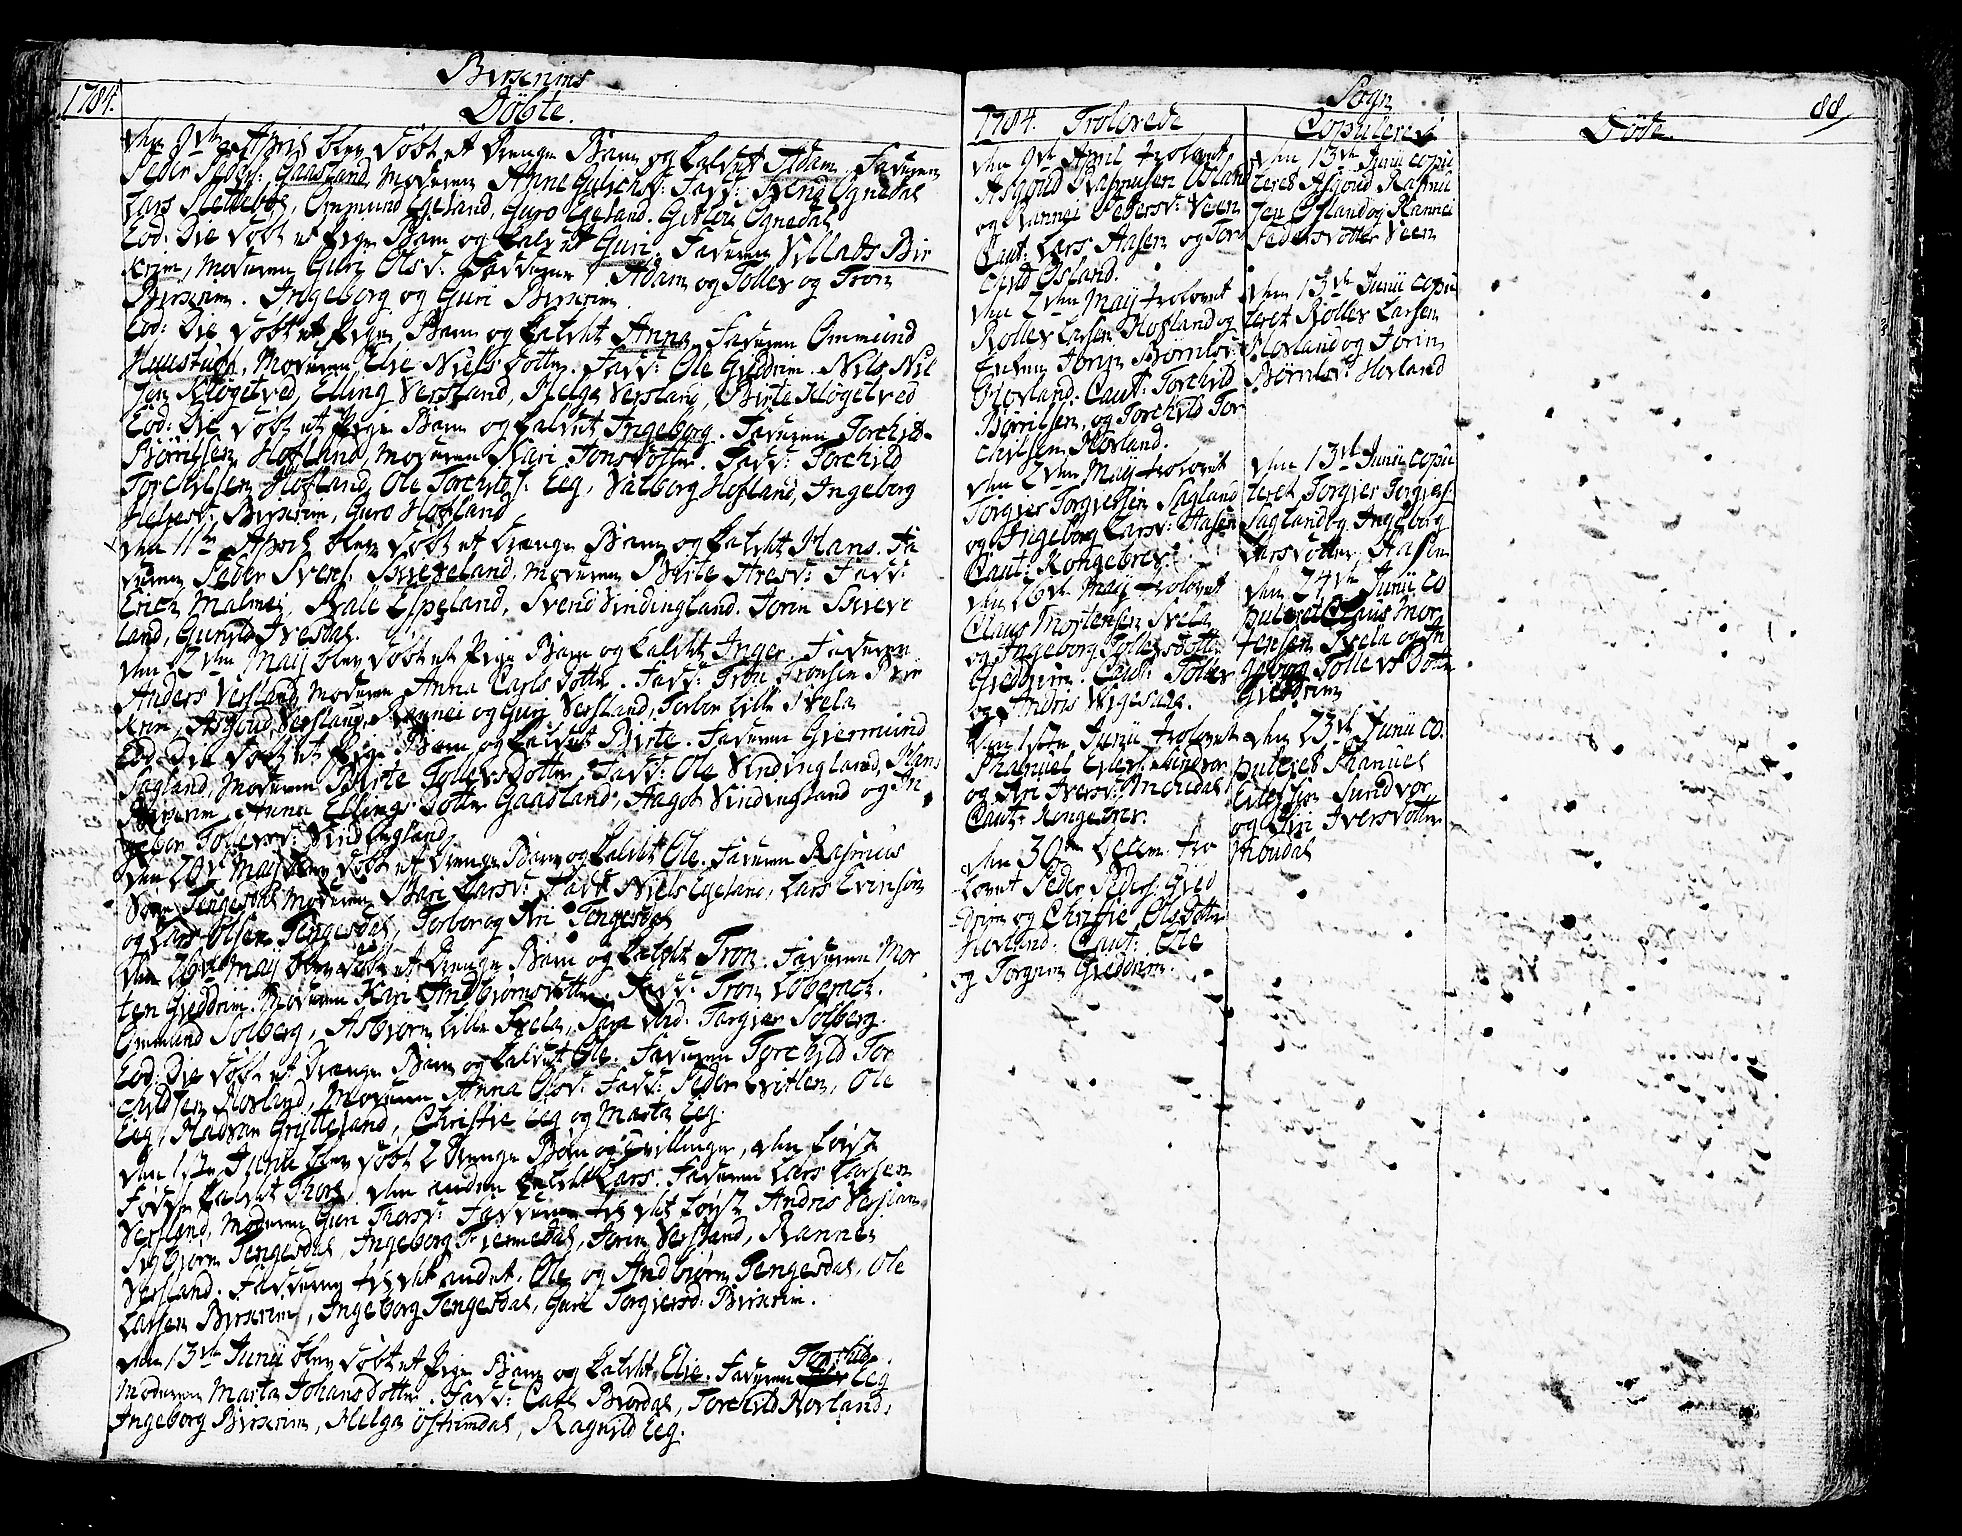 Birserims
1784.
Döbte.
den 9de April blev döbt et drenge Barn og kaldet Adam, Faderen
Peder Peders: Gaasland, Moderen Anne : Fadd: Svend Ognedal
Lars Slettebøe, Ommund Egeland, Guro Egeland. Ognedal
Eod: Die döbt et Pige Barn og kaldet Guri. Faderen Villads Bir
krim, Moderen Guri Olsd: Fadderne Adam og Tollev og Tron
Birserim. Ingeborg og Guri Birserim
Eod: Die döbt et Pige Barn og kaldet Anna, Faderen Ommund
, Moderen Else Niels dotter. Fadd: Ole Gieddrim. Nils Nil
sen Kløgetved, Elling Versland, Helga Versland, Birte Kløgetved
Eod: Die döbt et Pige Barn og kaldet Ingeborg. Faderen Torchild
Hofland, Moderen Kari Jonsdotter. Fadd: Torchild
Torchilsen Hofland, Ole Torchilds: Eeg, Valborg Hofland, Ingeborg
Birserim, Guro Hofland
den 11te April blev döbt et drenge Barn og kaldet Hans. Fa
deren Peder Svens. Skieveland, Moderen Birte Aresd: Fadd:
Erich Malmei, Svale Espeland, Svend Vindingland. Jorin Skieve
land, Gunild Ivesdal.
den 2den May blev döbt et Pige Barn og kaldet Inger. Faderen
Anders Versland, Moderen Anna Carls dotter. Fadd: Tron Tronsen Bir
krim, Asgoud Versland, Rannei og Guri Versland, Torbor Lille Svela
Eod: Die döbt et Pige Barn og kaldet Birte. Faderen Giermund
Sagland, Moderen Birte Tollevsdotter, Fadd: Ole Vindingland, Hans
, Anna Ellings dotter Gaadland, Aagot Vindingland og In
gebor Tollevsd: Vindingland
den 20de May blev döbt et drenge Barn og kaldet Ole. Faderen Rasmus
Tengesdal Moderen Larsd: Fadd: Niels Egeland, Lars Evinsøn
og Lars Olsen Tengesdal, Torbor og Ari Tengesdal
den 26de May blev döbt et drenge Barn og kaldet Tron. Faderen Mor
ten Gieddrim. Moderen Kari Andbiornsdotter. Fadd: Tron Løbrach.
Ommund Solberg, Asbiorn Lille Svela, Sara Torgier Solberg.
Eod: Die döbt et drenge Barn og kaldet Ole. Faderen Torchild Tor
childsen Hovland, Moderen Anna Olsd: Fadd: Peder , Ole
Eeg, Gristteland, Christie Eeg og Marta Eeg.
den 1ste Junii blev döbt 2 drenge Børn og Tvillinger, den först
Födde kaldet Thore, den anden kaldet Lars. Faderen Lars Larsen
Versland, Moderen Guri Thorsd: Fadderne til det först Andris Versland
Asbiorn Tengesdal, Ingeborg , Jorin Versland, Rannei
Versland. Fadderne til det andet. Ole og Andbiørn Tengesdal, Ole
Larsen Birserim, Ingeborg Tengesdal, Guri Torgiersd: Birserim.
den 13de Junii blev döbt et Pige Barn og kaldet Else. Faderen Torchild Eeg
Moderen Marta Johansdotter. Fadd: Carl Birdal, Torchild Hovland,
Ingeborg Birserim, Helga Östrimdal, Ragnild Eeg.
Sogn
88
1784. Trolovede
den 9de April trolovet
Asgoud Rasmusen Osland
og Rannei Pedersd: Veen
Caut: Lars Aasen og Tor
child Osland.
den 2den May trolovet
Rollev Larsen Hovland og
Enken Jorin Biørnlsd:
Hovland. Caut: Torchild
Biørnlsen, og Torchild Tor
chilsen Hovland.
den 2den May trolovet
Torgier Torgiersen Sagland
og Ingeborg Larsd: Aasen
Caut: Kongebrev.
den 26de May trolovet
Claus Mortensen Svela
og Ingeborg Tollevsdotter
Gieddrim. Caut: Tollev
og Andris
den 1ste Junii trolovet
Manuel Eilevs. Sundvor
og Siri Iversd: Moidal
Caut: Kongebrev.
den 30te Decem. tro
lovet Peder Peders: Gied
drim og Christie Olsdotter
Hovland. Caut: Ole
og Torgrim Gieddrim.
Copulered
den 13de Junii copu
leret Asgoud Rasmu
sen Osland og Rannei
Pedersdotter Veen
den 13de Junii copu
leret Rollev Larsen
Hovland og Jorin
Biørnlsd: Hovland
den 13de Junii copu
leret Torgier Torgiers:
Sagland og Ingeborg
Larsdotter Aasen
den 24de Junii co
puleret Claus Mor
tensen Svela og In
geborg Tollevsdotter
Gieddrim
den 23de Junii co.
puleret Manuel
Eilefsen Sundvor
og Siri Iversdotter
Moudal
Döde